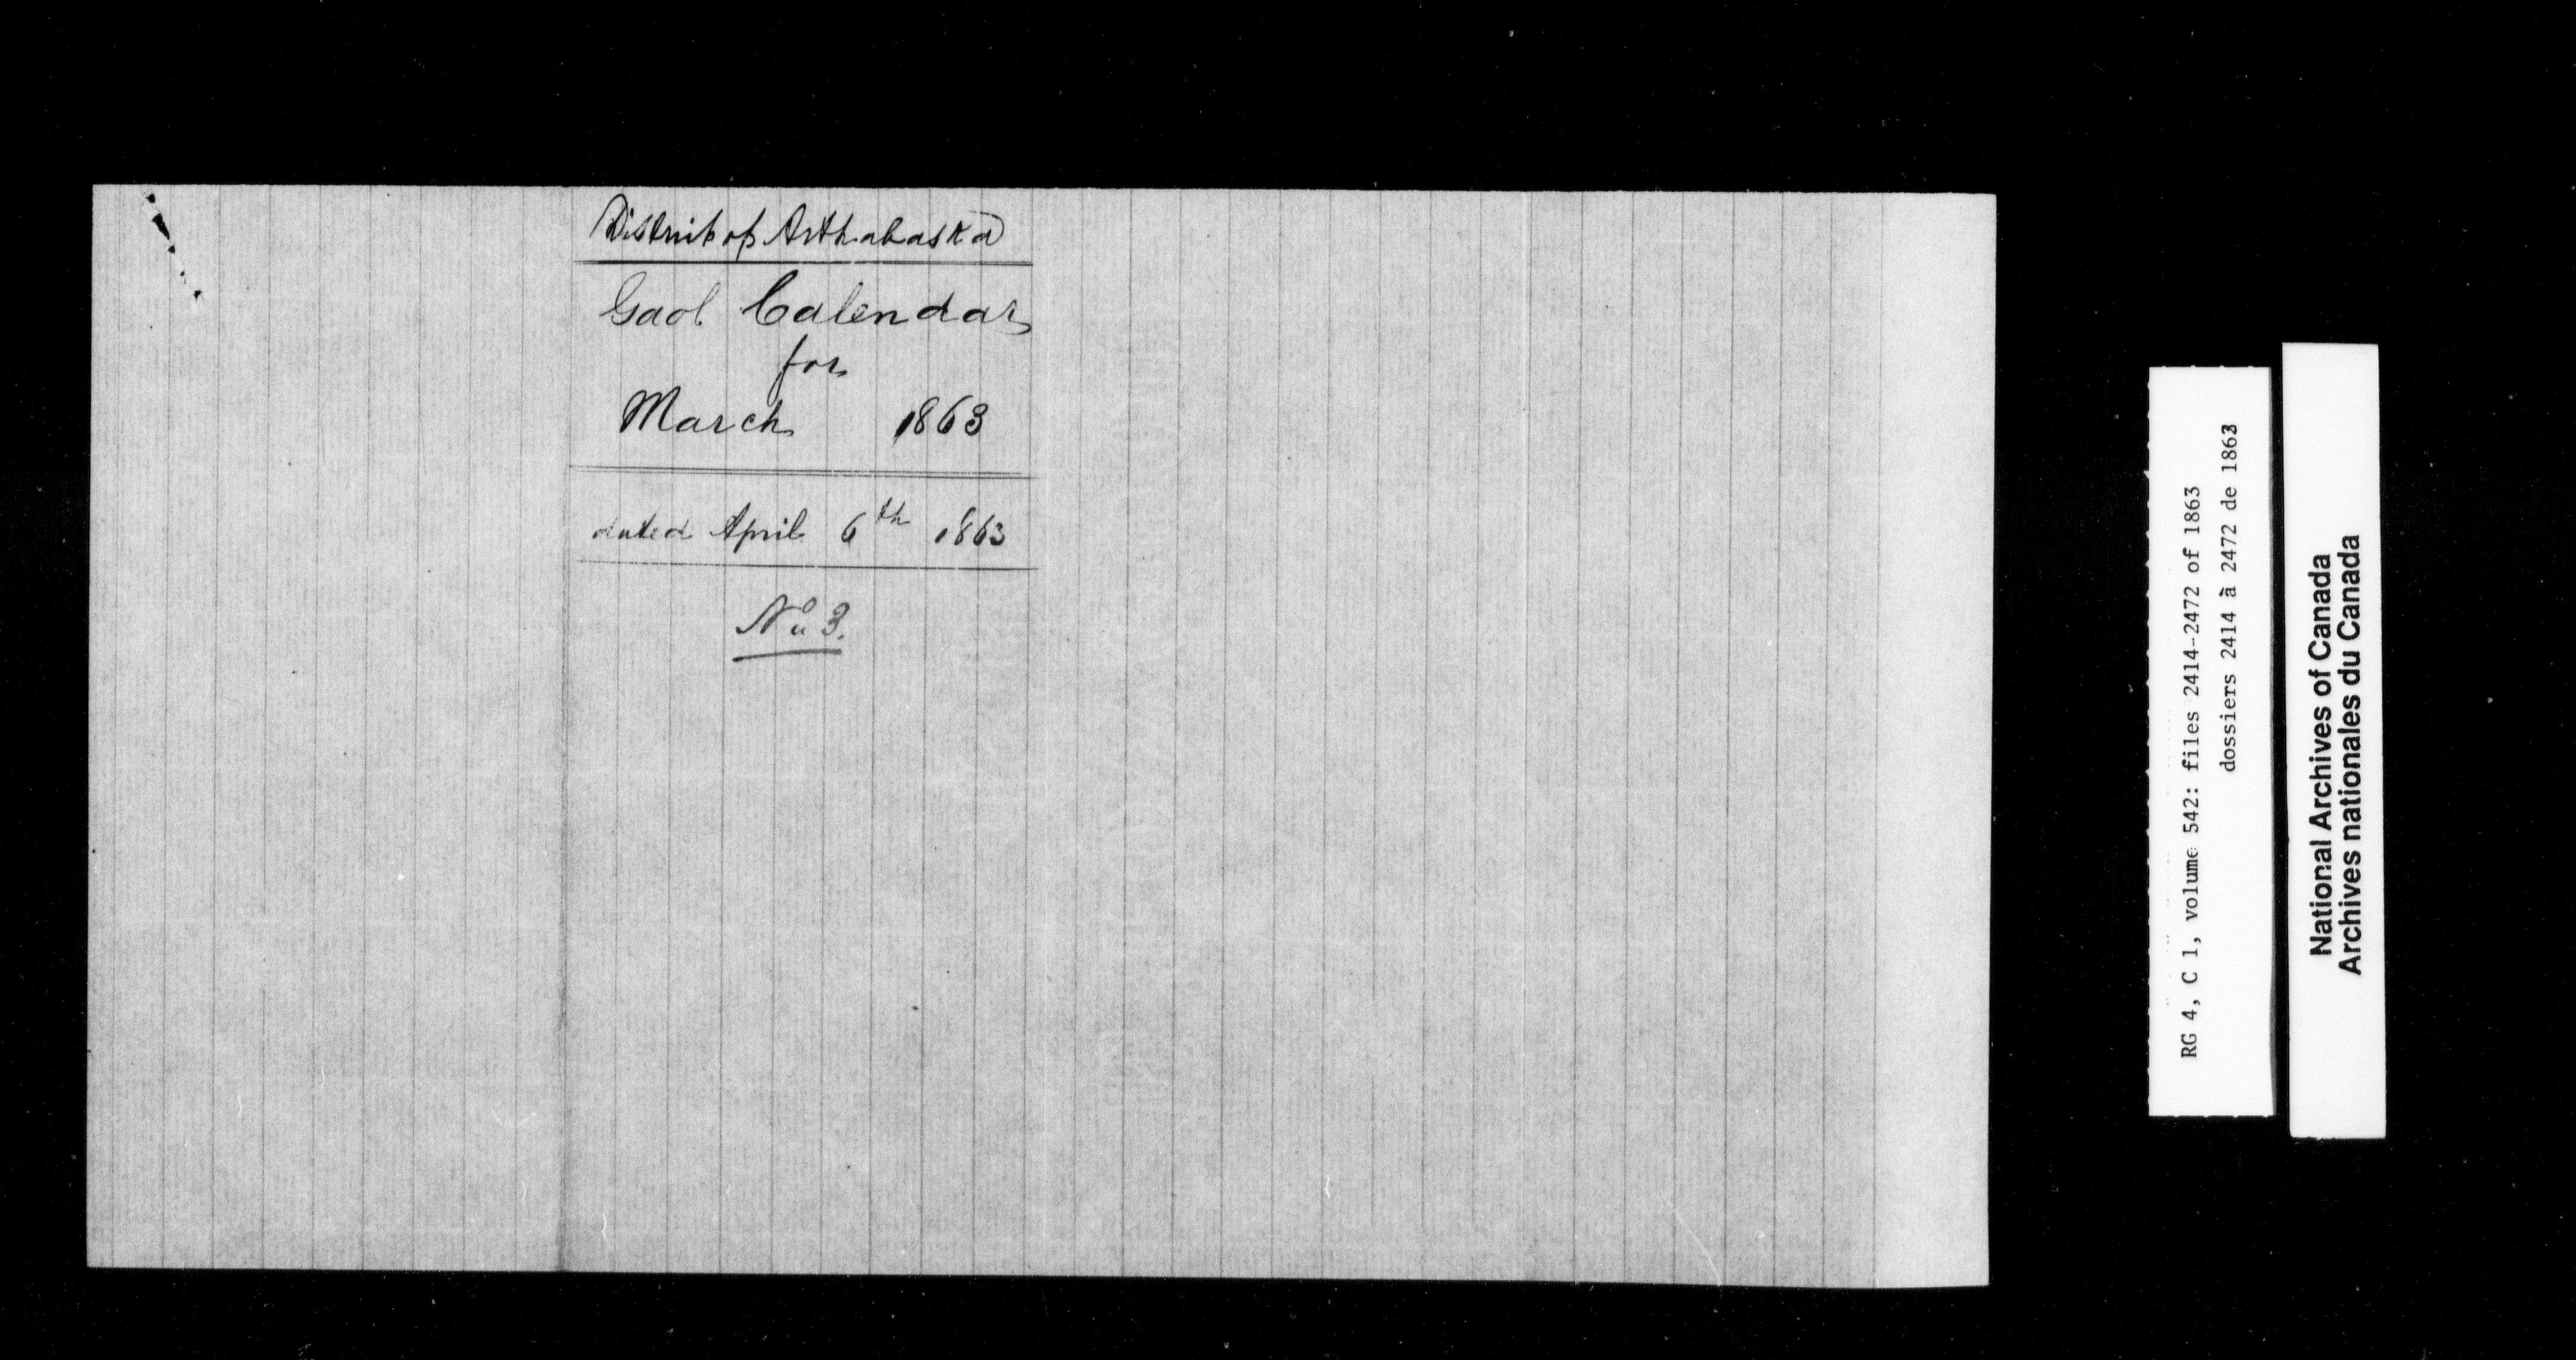 District of Arthabaska
Gaol Calendar
for
March 1863
dated April 6th 1863
No 3.
RG 4, C 1, volume 542: files 2414-2472 of 1863
dossiers 2414 à 2472 de 1863
National Archives of Canada
Archives nationales du Canada